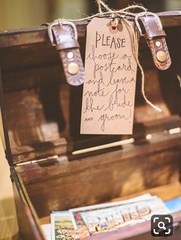 PLEASE
choose a
postcard
and leave a
note for
the bride
AND groom